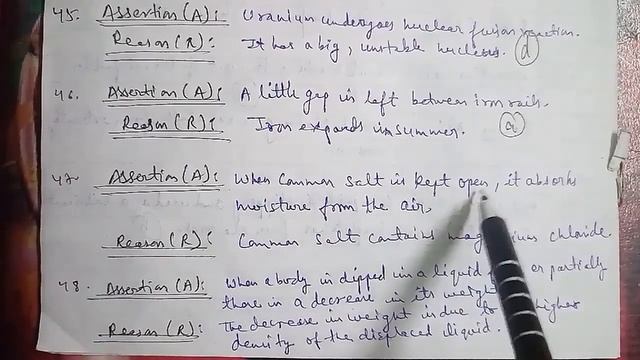 45. Assertion (A): Uranium undergoes nuclear fusion reaction.
Reason (R): It has a big, unstable nucleus. (d)
46. Assertion (A): A little gap is left between iron rails.
Reason (R): Iron expands in summer. (a)
47. Assertion (A): When Common salt is kept open, it absorbs
moisture from the air.
Reason (R): Common salt contains chloride.
48. Assertion (A): When a body is dipped in a liquid or partially
there is a decrease in its weight
Reason (R): The decrease in weight is due to higher
density of the displaced liquid.